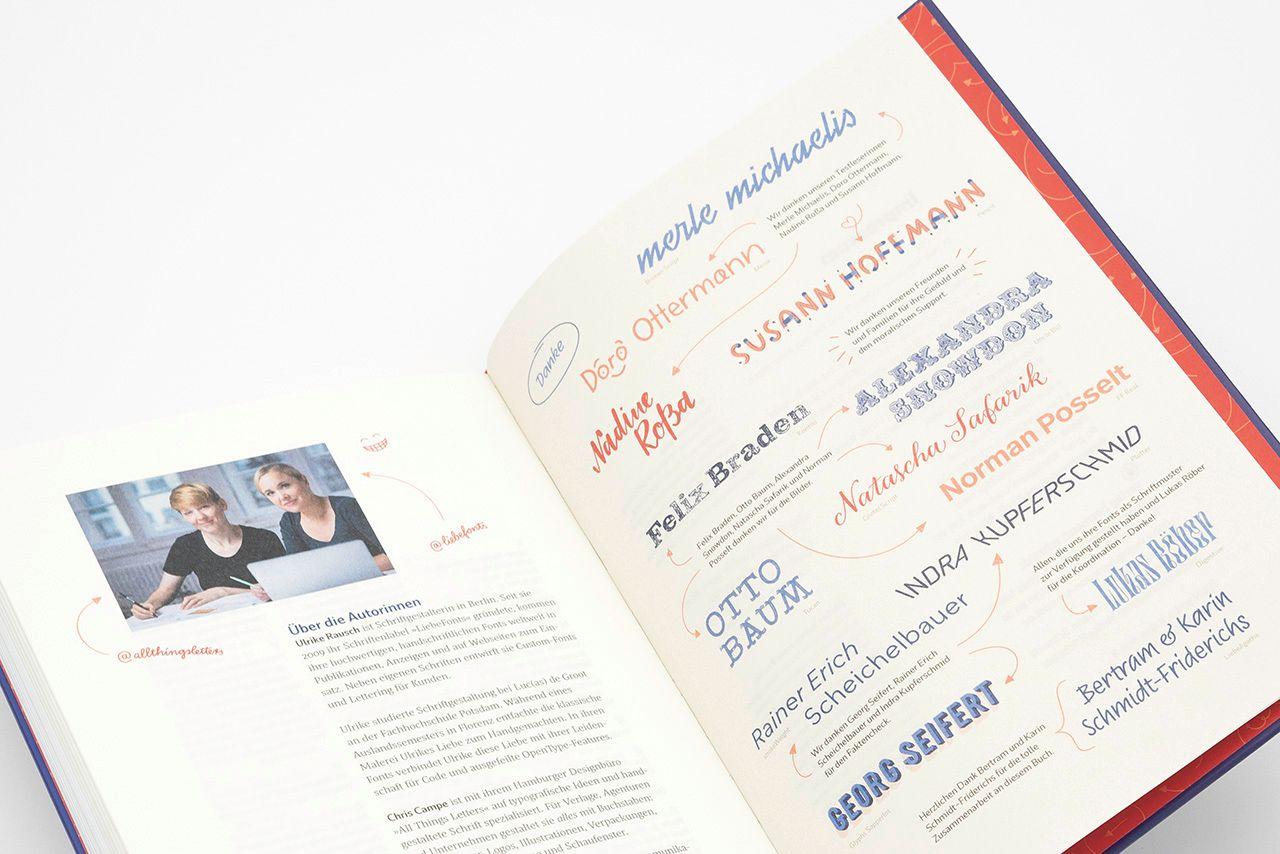 @liebefonts
@allthingsletters
Über die Autorinnen
Ulrike Rausch ist Schriftgestalterin in Berlin. Seit sie
2009 ihr Schriftenlabel »LiebeFonts« gründete, kommen
ihre hochwertigen, handschriftlichen Fonts weltweit in
Publikationen, Anzeigen und auf Webseiten zum Ein-
satz. Neben eigenen Schriften entwirft sie Custom-Fonts
und Lettering für Kunden.
Ulrike studierte Schriftgestaltung bei Luc(as) de Groot
an der Fachhochschule Potsdam. Während eines
Auslandssemesters in Florenz entfachte die klassische
Malerei Ulrikes Liebe zum Handgemachten. In ihren
Fonts verbindet Ulrike diese Liebe mit ihrer Leiden-
schaft für Code und ausgefeilte OpenType-Features.
Chris Campe ist mit ihrem Hamburger Designbüro
»All Things Letters« auf typografische Ideen und hand-
gestaltete Schrift spezialisiert. Für Verlage, Agenturen
und Unternehmen gestaltet sie alles mit Buchstaben:
Logos, Illustrationen, Verpackungen,
und Schaufenster.
merle michaelis
Wir danken unseren Testleserinnen
Merle Michaelis, Doro Ottermann,
Nadine Roßa und Susann Hoffmann.
Danke
Doro Ottermann
SUSANN HOFFMANN
Nadine
Roßa
Wir danken unseren Freunden
und Familien für ihre Geduld und
den moralischen Support.
ALEXANDRA
SNOWDON
Felix Braden
Felix Braden, Otto Baum, Alexandra
Snowdon, Natascha Safarik und Norman
Posselt danken wir für die Bilder.
Natascha Safarik
Norman Posselt
FF Real
OTTO
BAUM
Tucan
INDRA KUPFERSCHMID
Allen, die uns ihre Fonts als Schriftmuster
zur Verfügung gestellt haben und Lukas Röber
für die Koordination – Danke!
Lukas Röber
Digestive
Rainer Erich
Scheichelbauer
Wir danken Georg Seifert, Rainer Erich
Scheichelbauer und Indra Kupferschmid
für den Faktencheck.
GEORG SEIFERT
Bertram & Karin
Schmidt-Friderichs
Herzlichen Dank Bertram und Karin
Schmidt-Friderichs für die tolle
Zusammenarbeit an diesem Buch.